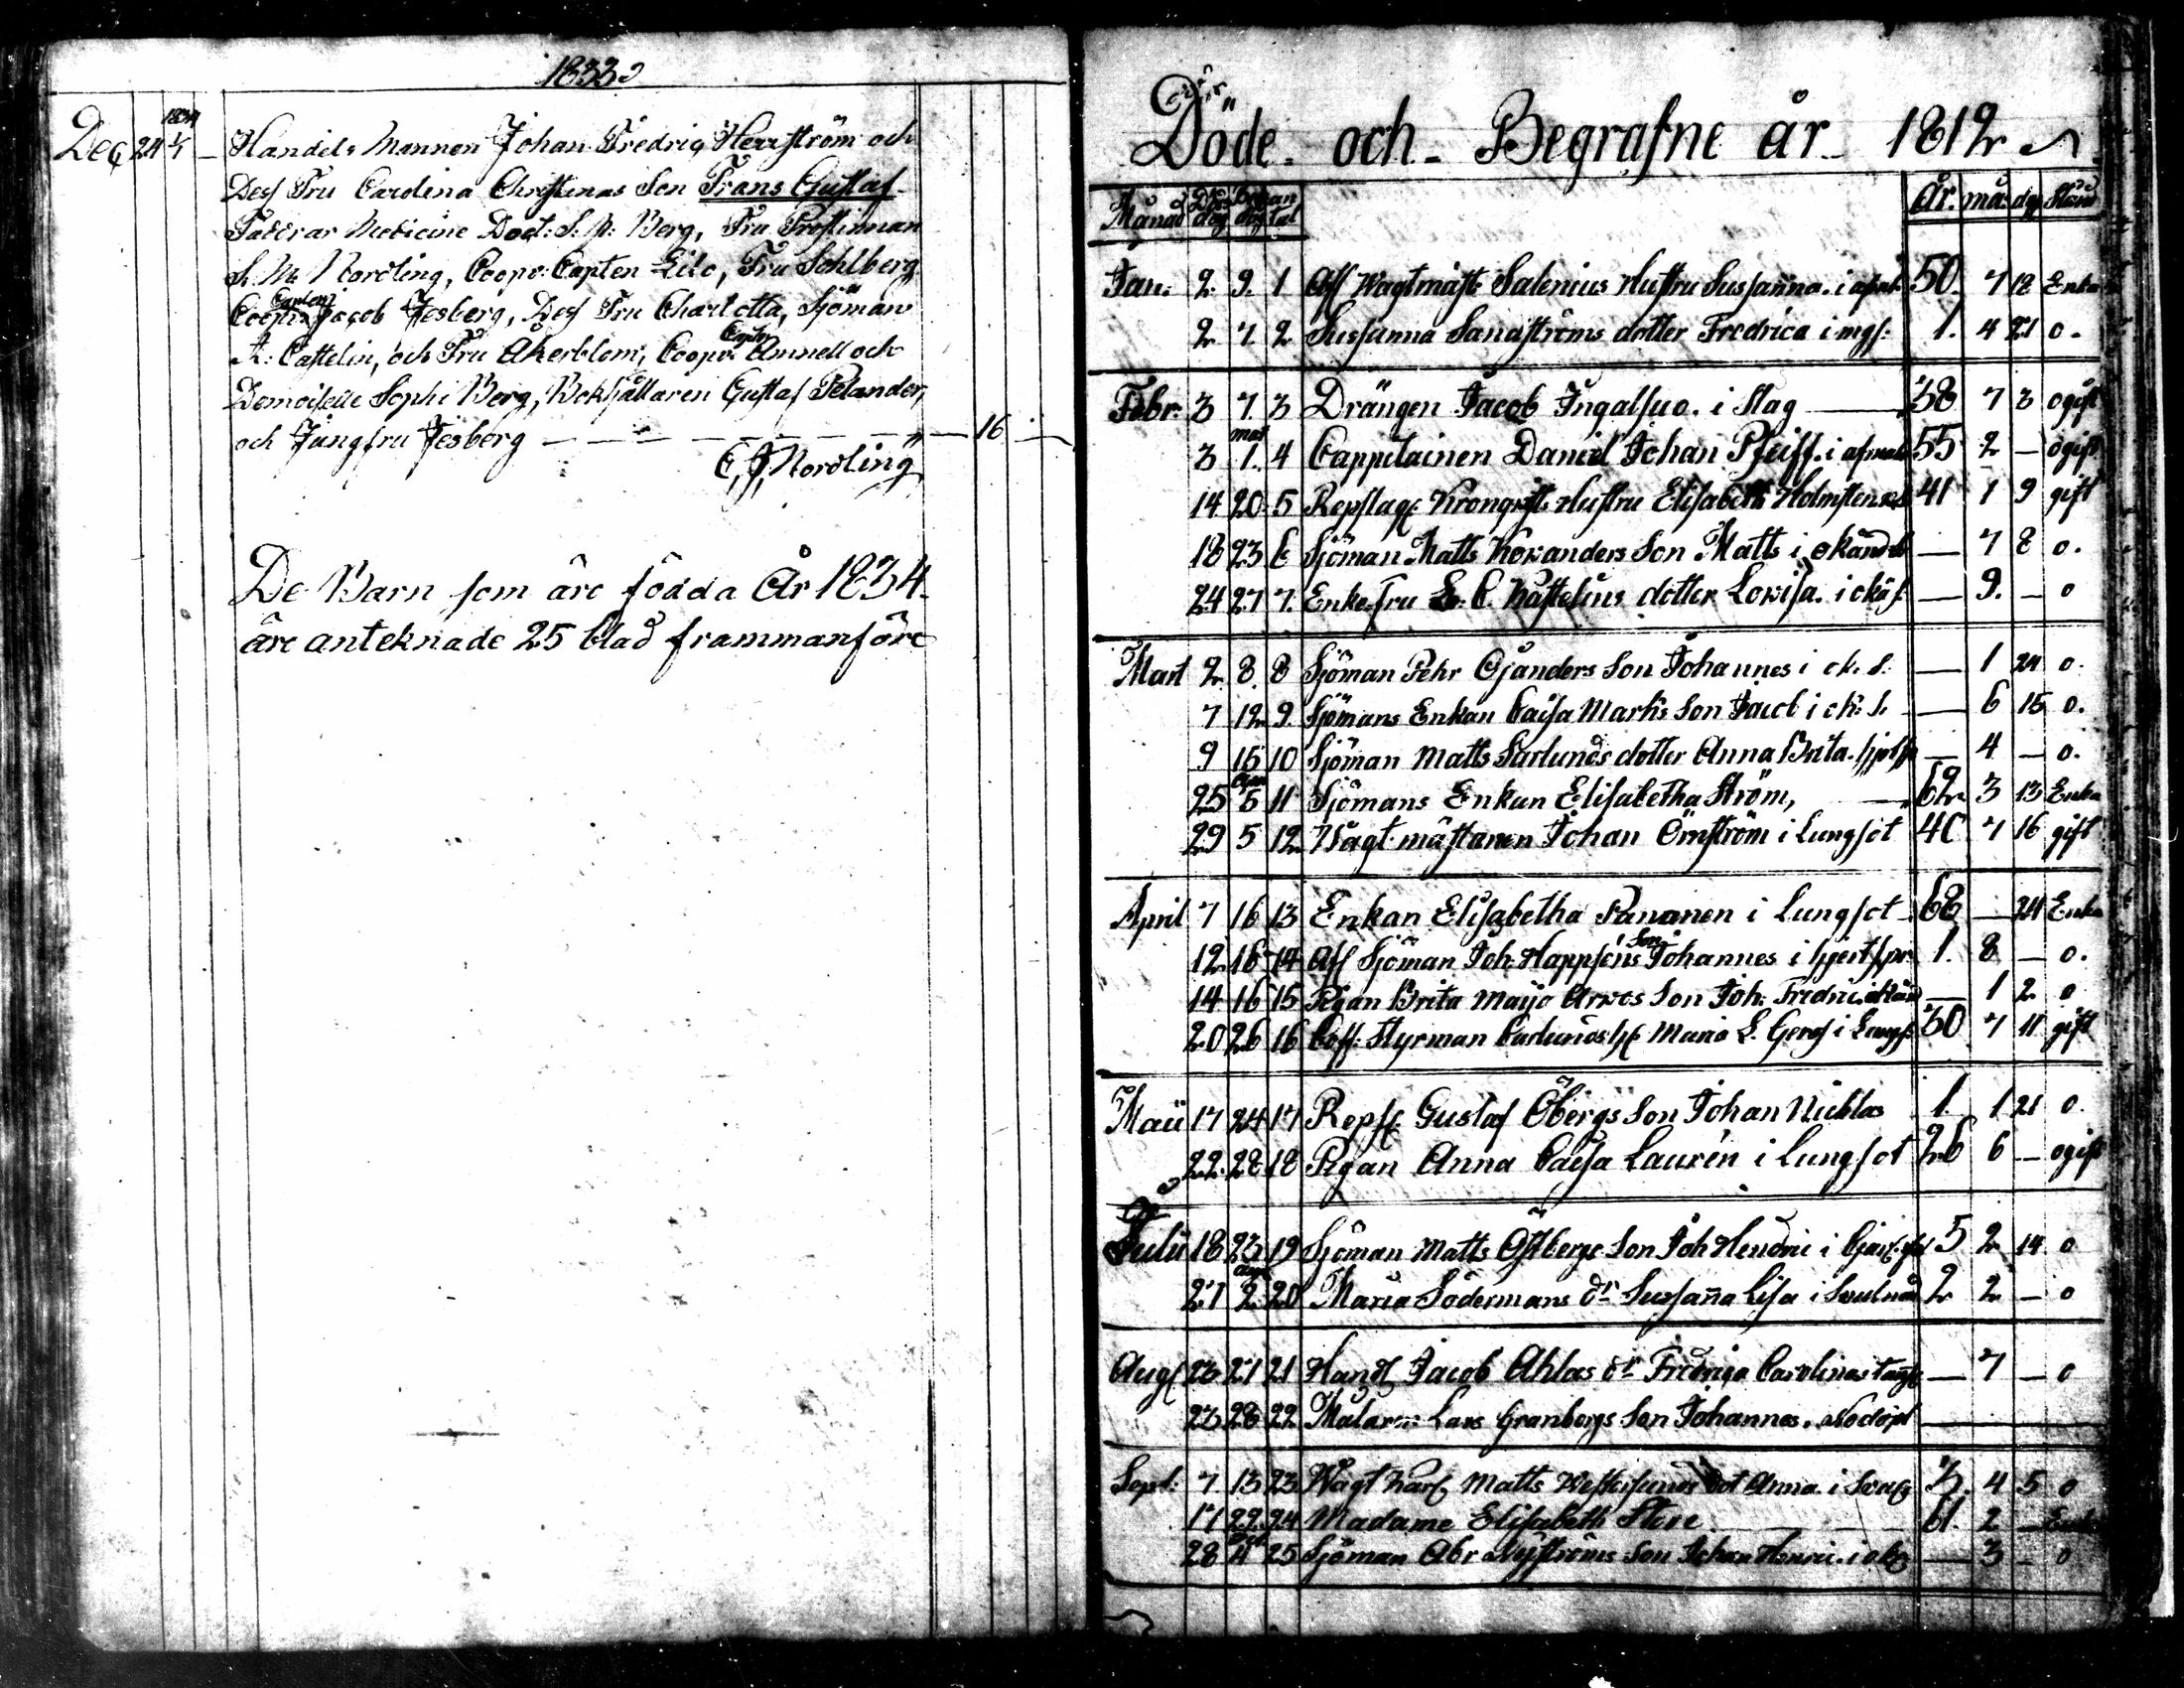 1833
Dec 24 1834 1/1 Handels Mannen Johan Fredriq Herrström och
Dess Fru Carolina Christinas Son Frans Gustaf
Faddrar Medicine Doct: S. M: Berg, Fru Prostinnan
S. M: Nordling, Coopv: Capten Lilo, Fru Sohlberg
Coopv: Capten Jacob Jesberg, Dess Fru Charlotta, Sjöman
A: Castelin, och Fru Åkerblom, Coopv: Capten Amnell och
Demoiselle Sophi Berg, Bokhållaren Gustaf Pelander,
och Jungfru Jesberg — 16
C. J. Nordling
De Barn som äre födda År 1834
äre anteknade 25 blad frammanföre
Döde och Begrafne år 1812
Månad dag dag tal År. må: dg Stånd
Jan: 2 9 1 Afl Wagtmäst: Salenius Hustru Sussanna 50 7 12 Enka
2 7 2 Sussanna Sandströms dotter Fredrica 1. 4 21 o.
Febr: 3 7 3 Drängen Jacob Ingalsuo. i Slag 38 7 3 ogift
3 1 4 Cappitainen Daniel Johan Pfeiff. 55 2 — ogift
14 20 5 Repslag: Kronqvists Hustru Elisabeth 41 1 9 gift
18 23 6 Sjöman Matts Kowanders Son Matts i okänd — 7 8 o.
24 27 7 Enkefru C. Kastelius dotter Lowisa. — 9. — o
Mart 2 8 8 Sjöman Pehr Öjanders Son Johannes i ok. s. — 1 24 o.
7 12 9 Sjömans Enkan Caisa Marks Son Jacob i ok: s. — 6 15 o.
9 15 10 Sjöman Matts Sarlunds dotter Anna Brita. — 4 — o.
25 5 11 Sjömans Enkan Elisabetha Ström, 62 3 13 Enka
29 5 12 Wagtmästaren Johan Örnström i Lungsot 40 7 16 gift
April 7 16 13 Enkan Elisabetha Pananen i Lungsot 68 — 24 Enka
12 16 14 Afl Sjöman Joh: Happséns Son Johannes i 1. 8 — o.
14 16 15 Pigan Brita Maijo Son Joh: Fredric — 1 2 o
20 26 16 Styrman Carlunds Maria L. i Lungs: 30 7 11 gift
Maii 17 24 17 Repsl: Gustaf Öbergs Son Johan Nicklas 1 1 21 o.
22 28 18 Pigan Anna Caisa Laurén i Lungsot 26 6 — ogift
Julii 18 23 19 Sjöman Matts Östbergs Son Joh Hendric i 5 2 14 o
27 Aug 2 20 Maria Södermans dr Sussanna Lisa i 2 2 — o
Aug 23 27 21 Handl Jacob Ahlas dr Fredriqa Carolina — 7 — o
23 28 22 Målaren Lars Granbergs Son Johannes. Nödöpt
Sept: 7 13 23 Wagt Karl Matts dot Anna. i 3. 4 5 o
17 22 24 Madame Elisabeth Stere 61. 2 —
28 4 25 Sjöman Abr Nyströms Son Johan Henric — 3 — o